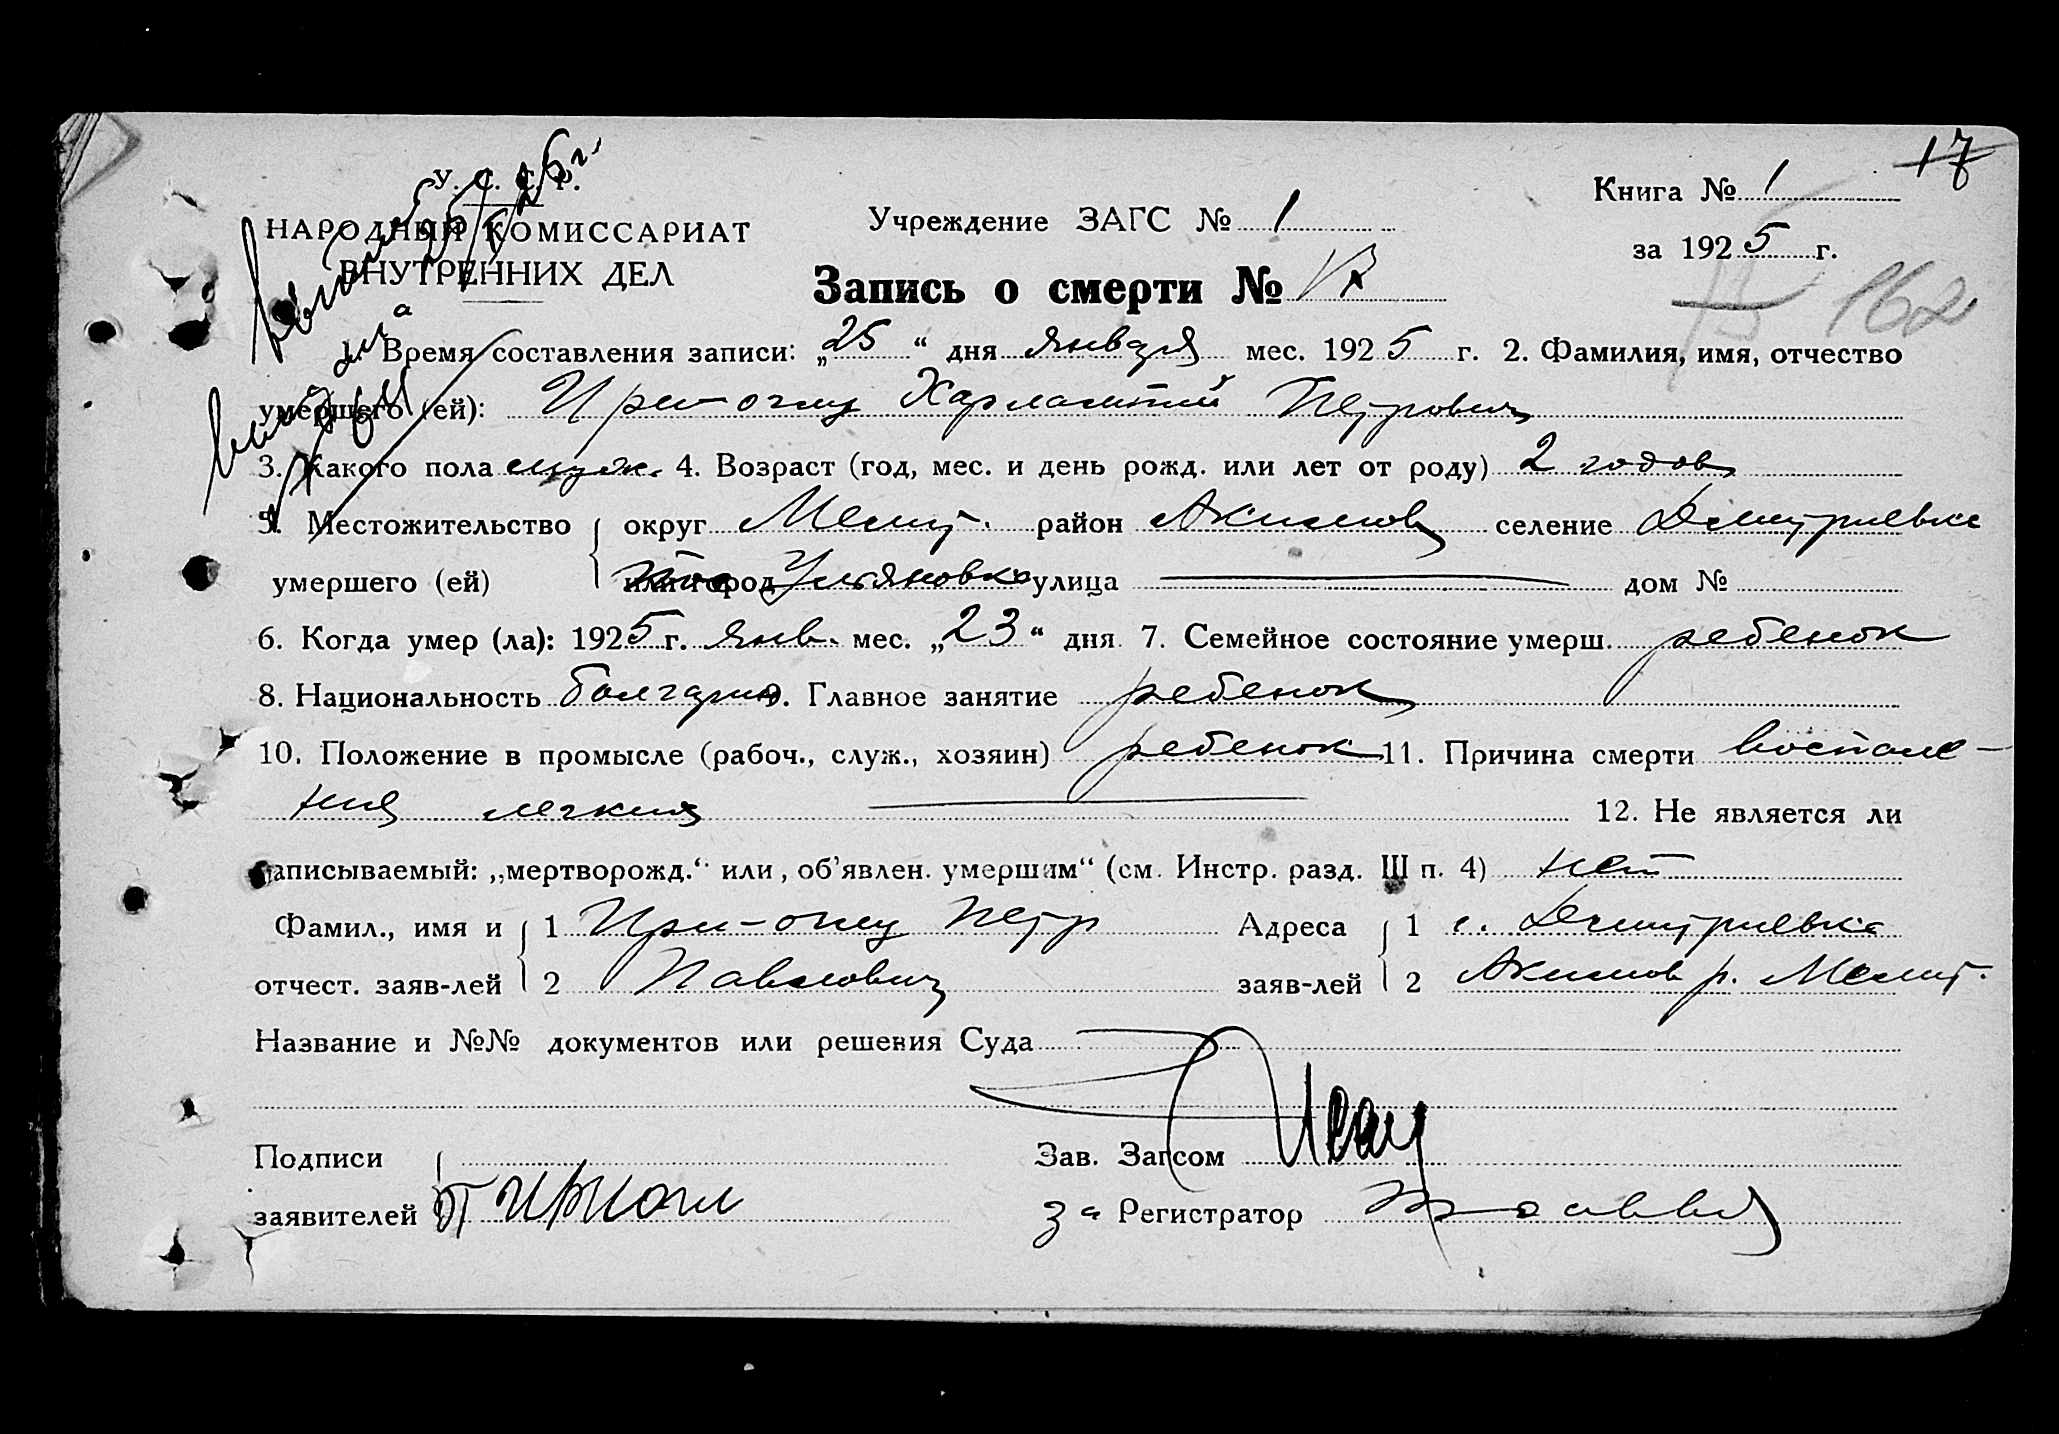 17
У. С. С. Р.
НАРОДНЫЙ КОМИССАРИАТ
ВНУТРЕННИХ ДЕЛ
Учреждение ЗАГС № 1
Книга № 1
за 1925 г.
Запись о смерти №
162
1. Время составления записи: „25“ дня января мес. 1925 г. 2. Фамилия, имя, отчество
умершего (ей): Харлампий Петрович
3. Какого пола муж. 4. Возраст (год, мес. и день рожд. или лет от роду) 2 годов
5. Местожительство округ Мелит. район Акимов селение Дмитриевка
умершего (ей) или город Ульяновка улица дом №
6. Когда умер (ла): 1925 г. янв. мес. „23“ дня 7. Семейное состояние умерш. ребенок
8. Национальность болгарин 9. Главное занятие ребенок
10. Положение в промысле (рабоч., служ., хозяин) ребенок 11. Причина смерти воспале-
ния легких 12. Не является ли
записываемый: „мертворожд.“ или „об’явлен. умершим“ (см. Инстр. разд. III п. 4) нет
Фамил., имя и 1 Петр Адреса 1 с. Дмитриевка
отчест. заяв-лей 2 Павлович заяв-лей 2 Акимов р. Мелит.
Название и №№ документов или решения Суда
Подписи Зав. Загсом
заявителей П за Регистратор